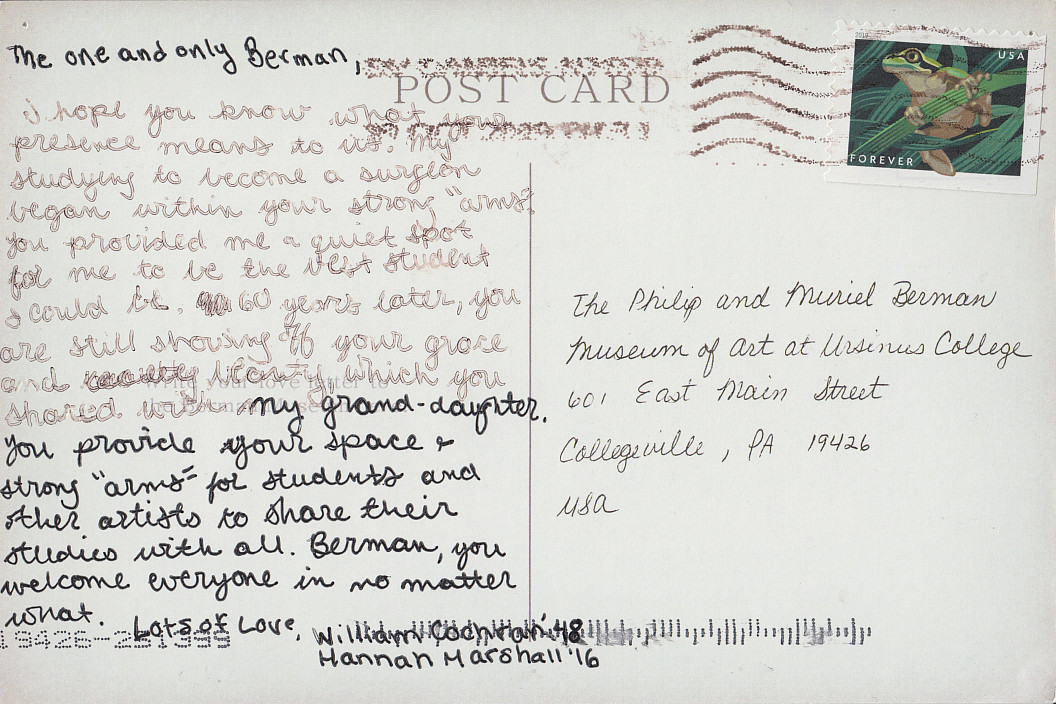 The one and only Berman,
POST CARD
I hope you know what your
presence means to us. My
studying to become a surgeon
began within your strong "arms".
You provided me a quiet spot
for me to be the best student
I could be. 60 years later, you
are still showing off your grace
and beauty, which you
shared with my grand-daughter.
You provide your space &
strong "arms" for students and
other artists to share their
studies with all. Berman, you
welcome everyone in no matter
what.
Lots of Love,
William Cochran '48
Hannah Marshall '16
2019
USA
FOREVER
The Philip and Muriel Berman
Museum of Art at Ursinus College
601 East Main Street
Collegeville, PA 19426
USA